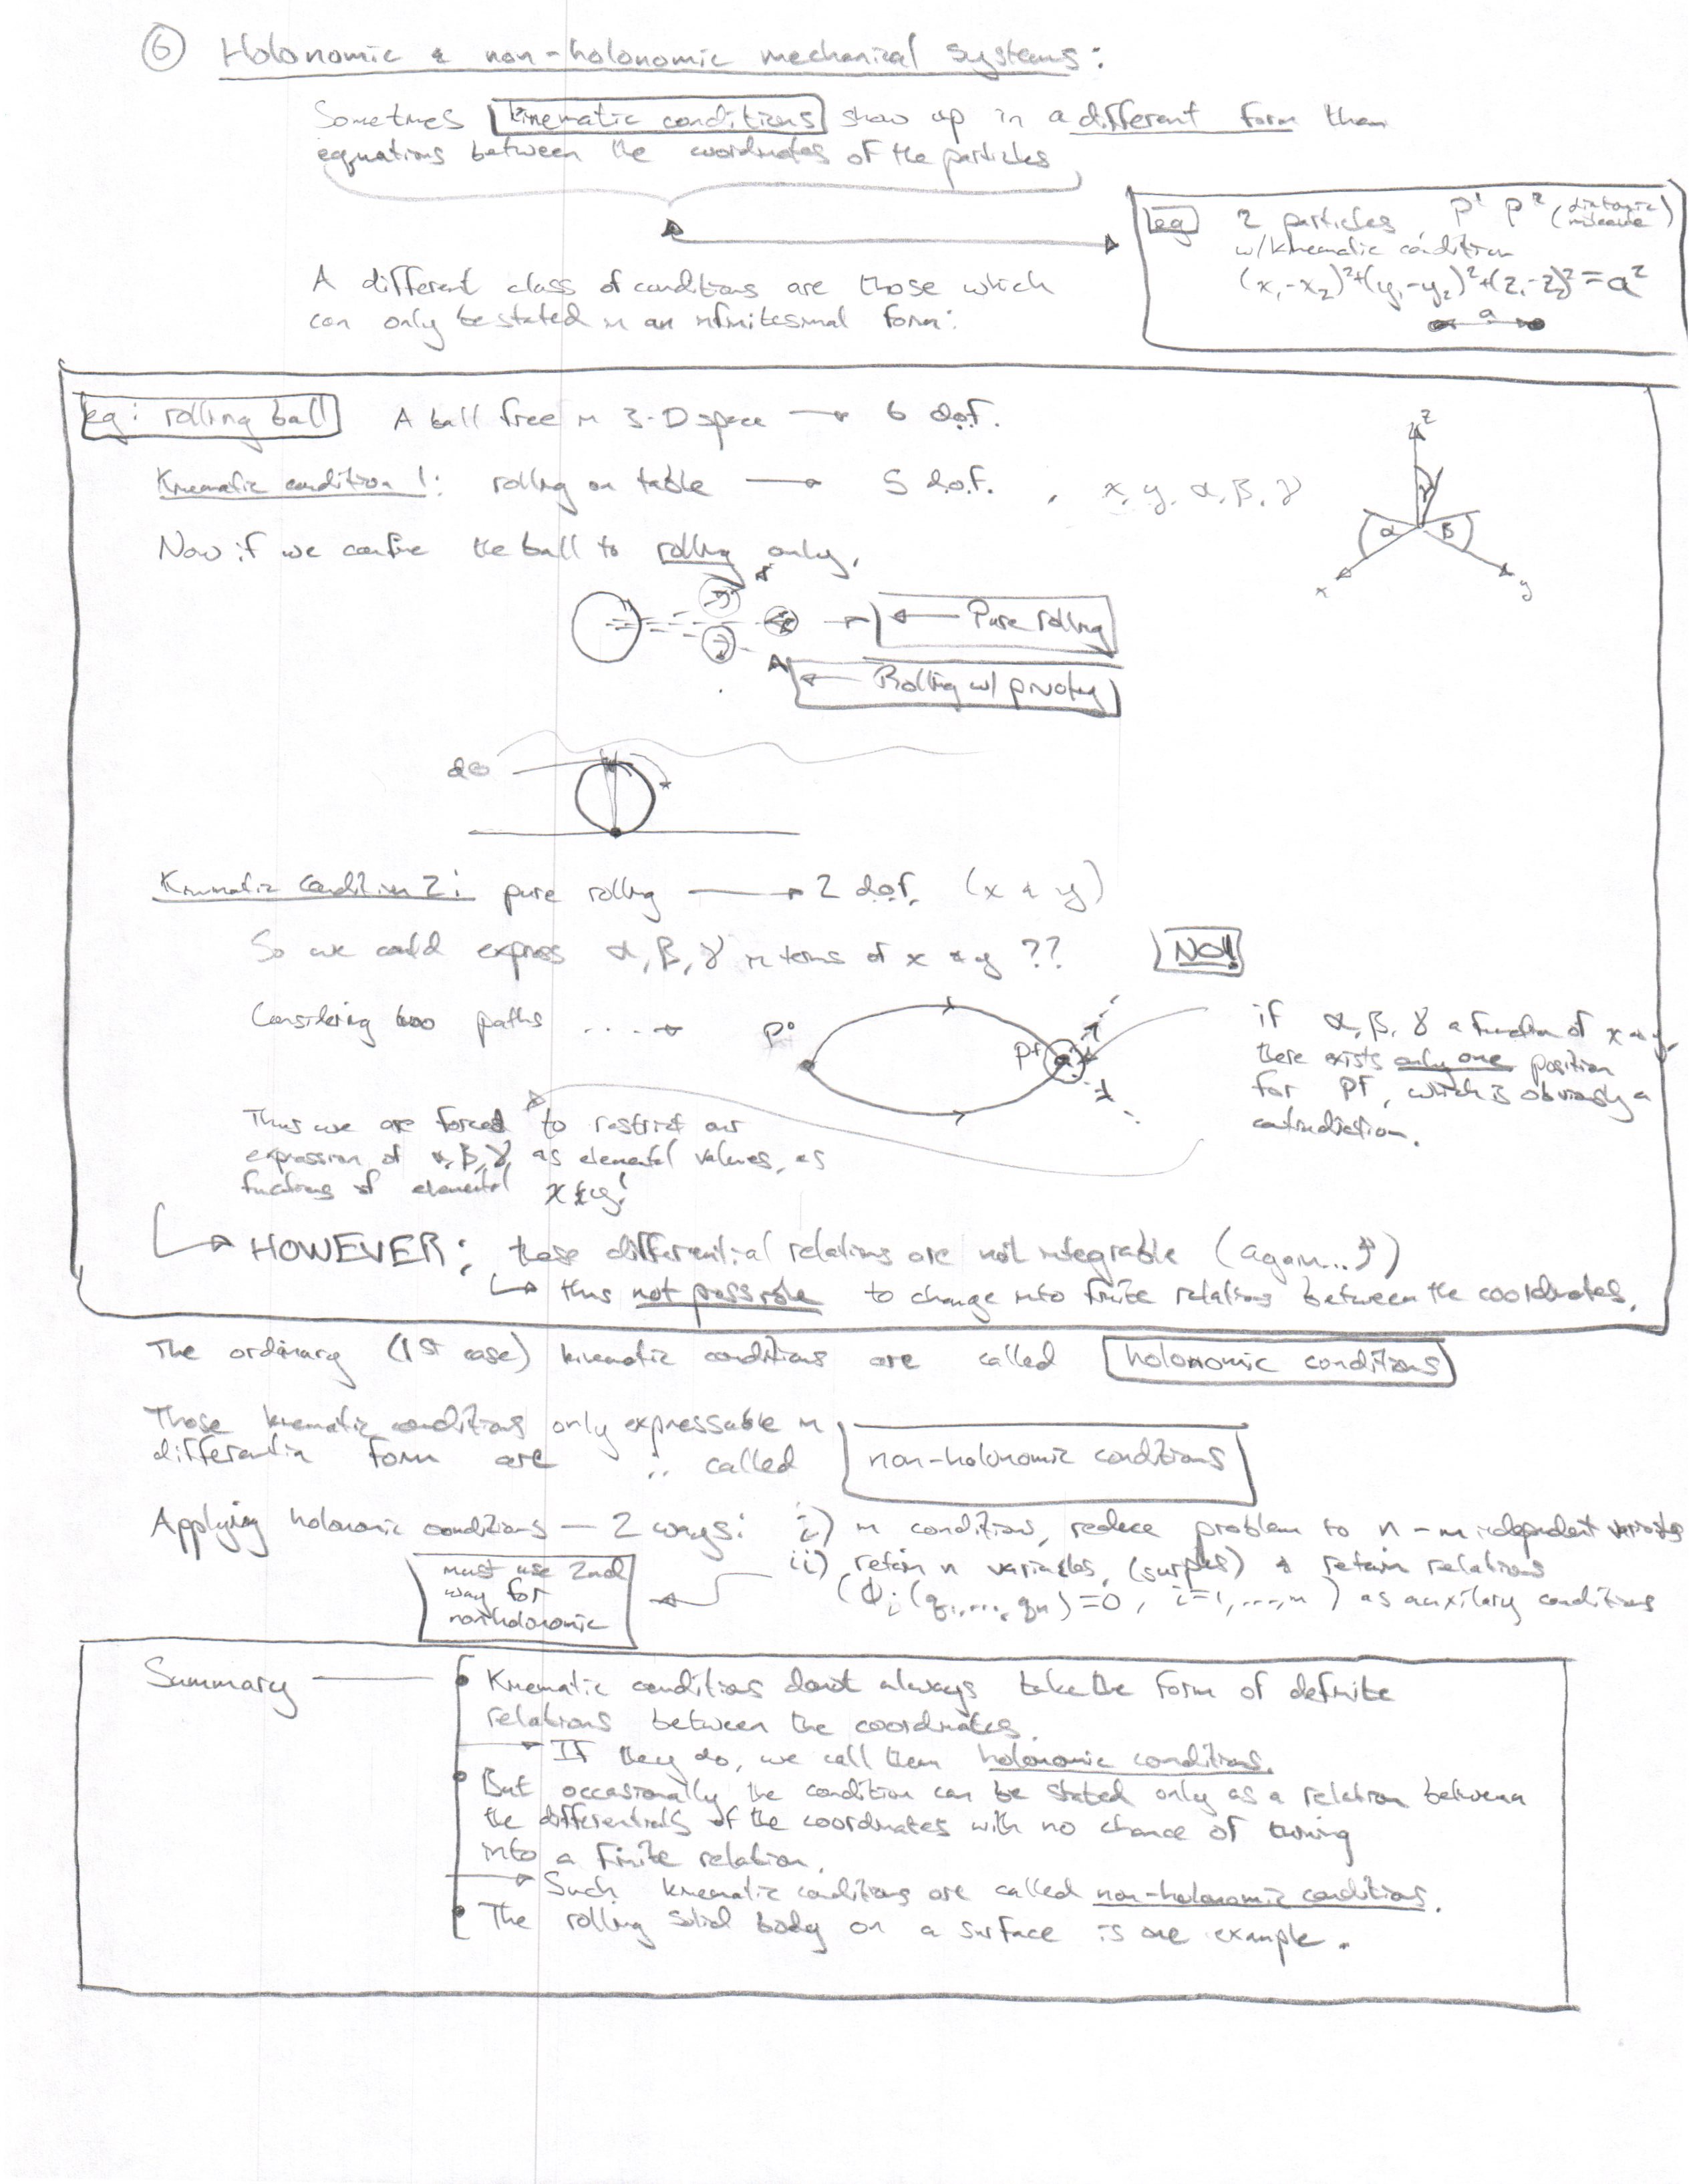 ⑥ Holonomic & non-holonomic mechanical systems:
Sometimes kinematic conditions show up in a different form than
equations between the coordinates of the particles
eg 2 particles, P¹ P² (diatomic molecule)
w/ kinematic condition
(x₁-x₂)²+(y₁-y₂)²+(z₁-z₂)²=a²
a
A different class of conditions are those which
can only be stated in an infinitesimal form:
eg: rolling ball A ball free in 3-D space → 6 d.o.f.
Kinematic condition 1: rolling on table → 5 d.o.f. , x, y, α, β, γ
z
γ
α β
x y
Now if we confine the ball to rolling only,
Pure rolling
Rolling w/ pivoting
dθ
Kinematic condition 2: pure rolling → 2 d.o.f. (x & y)
So we could express α, β, γ in terms of x & y ?? NO!!
Considering two paths ....→
P⁰
Pf
if α, β, γ a function of x & y,
there exists only one position
for Pf, which is obviously a
contradiction.
Thus we are forced to restrict our
expression of α, β, γ, as elemental values, as
functions of elemental x & y!
↳ HOWEVER: these differential relations are not integrable (again...)
↳ thus not possible to change into finite relations between the coordinates.
The ordinary (1st case) kinematic conditions are called holonomic conditions
Those kinematic conditions only expressable in
differentia form are ∴ called non-holonomic conditions
Applying holonomic conditions — 2 ways: i) m conditions, reduce problem to n-m independent variables
ii) retain n variables, (surplus) & retain relations
(φᵢ(q₁,...,qₙ)=0, i=1,...,m) as auxilary conditions
must use 2nd
way for
nonholonomic
Summary
• Kinematic conditions do not always take the form of definite
relations between the coordinates.
→ If they do, we call them holonomic conditions.
• But occasionally the condition can be stated only as a relation between
the differentials of the coordinates with no chance of turning
into a finite relation.
→ Such kinematic conditions are called non-holonomic conditions.
• The rolling solid body on a surface is one example.